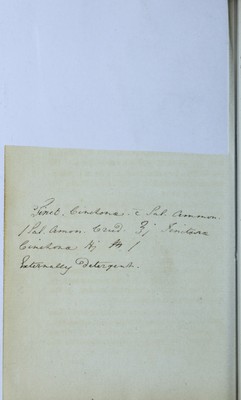 Tinct. Cinchona. c Sal. Ammon.
/ Sal. Amon. Crud. ʒj Tinctura
Cinchona ℔j M /
Externally Detergent.